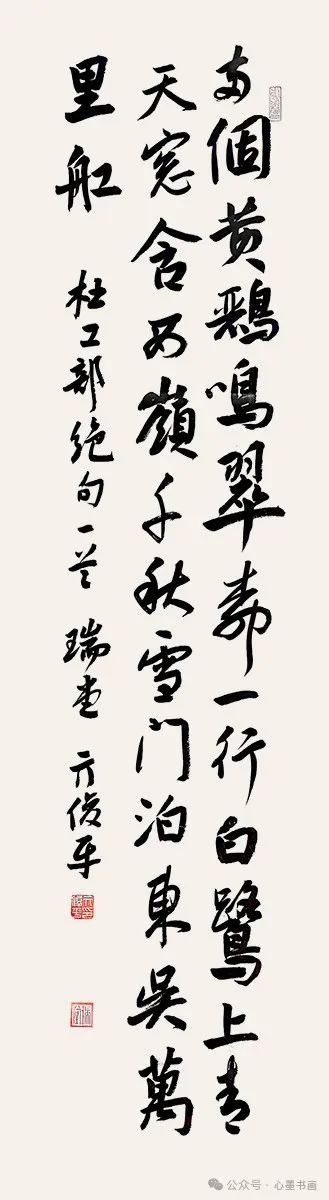 两個黄鸝鳴翠柳一行白鷺上青
天窓含西嶺千秋雪門泊東吳萬
里舡
杜工部絶句一首 瑞 亓俊平
公众号·心墨书画